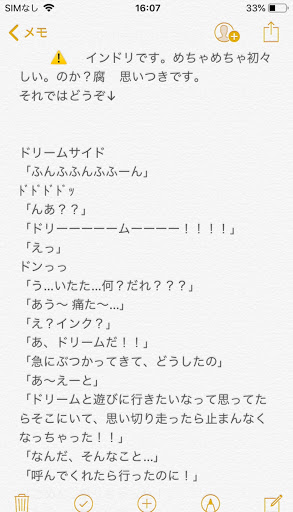 SIMなし 16:07 33%
メモ
⚠️ インドリです。めちゃめちゃ初々
しい。のか？腐 思いつきです。
それではどうぞ↓
ドリームサイド
「ふんふふんふふーん」
ﾄﾞﾄﾞﾄﾞﾄﾞｯ
「んあ？？」
「ドリーーーーームーーーー！！！！」
「えっ」
ドンっっ
「う...いたた...何？だれ？？？」
「あう〜 痛た〜...」
「え？インク？」
「あ、ドリームだ！！」
「急にぶつかってきて、どうしたの」
「あ〜えーと」
「ドリームと遊びに行きたいなって思ってたらそこにいて、思い切り走ったら止まんなく
なっちゃった！！」
「なんだ、そんなこと...」
「呼んでくれたら行ったのに！」